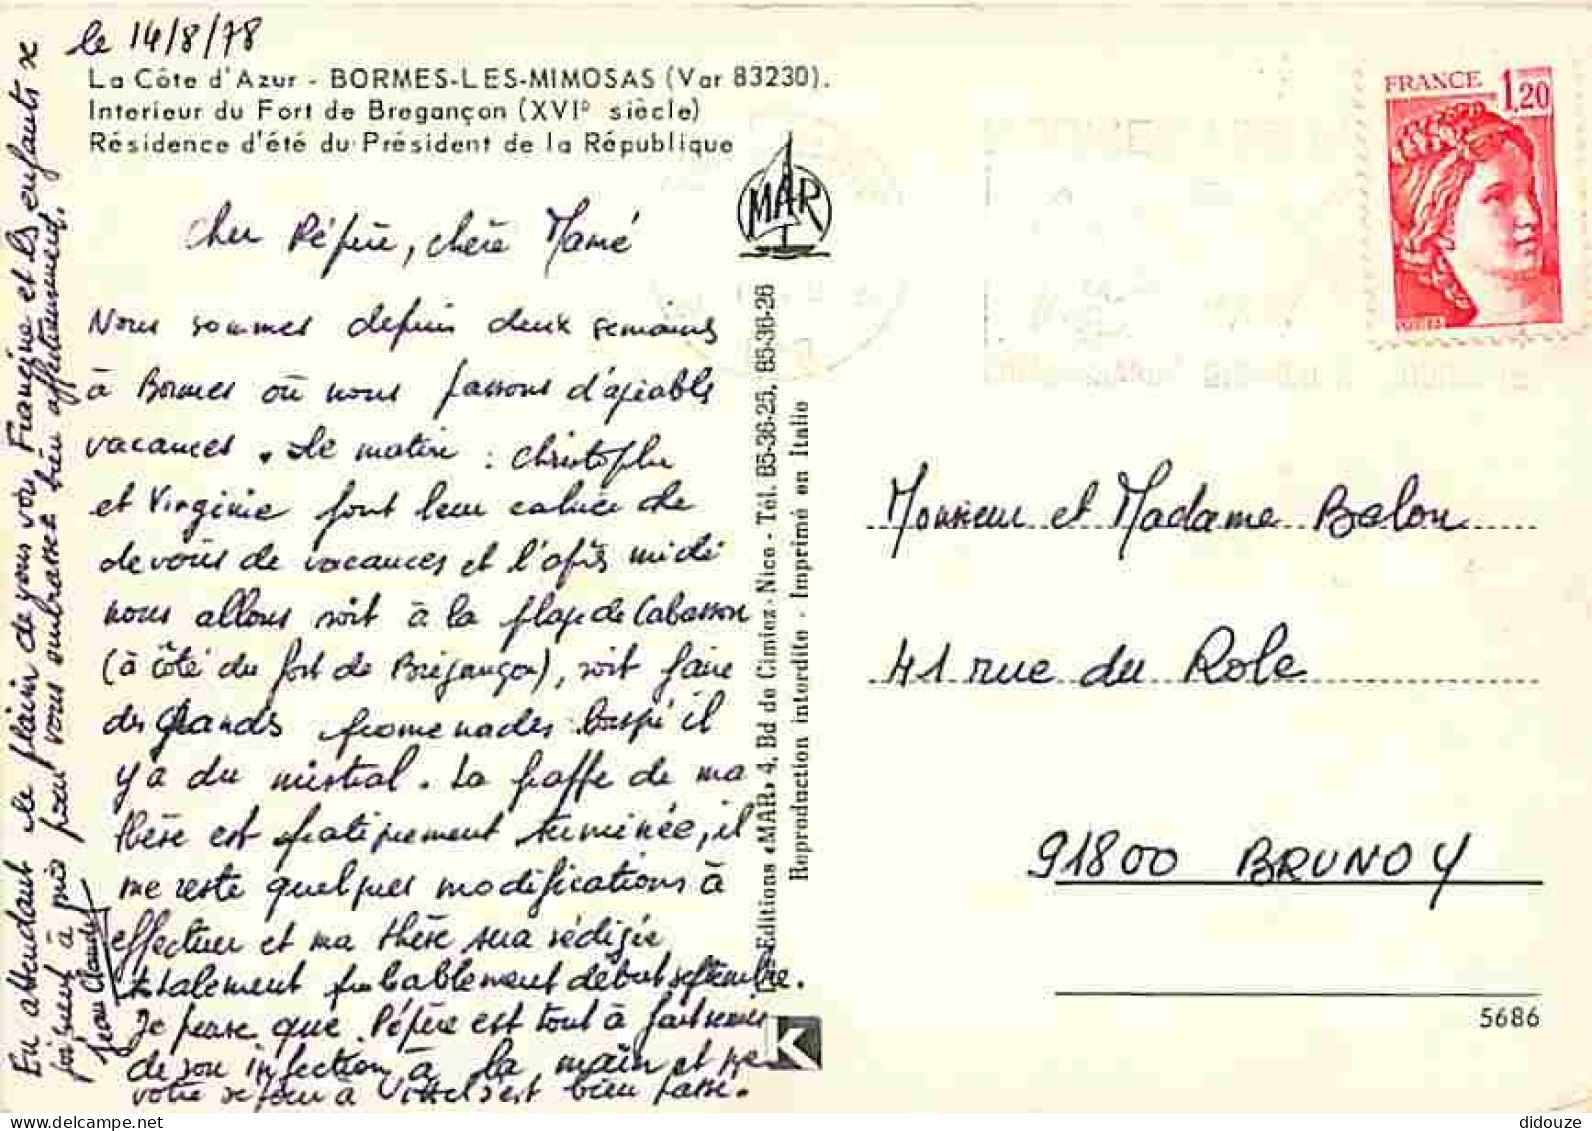 le 14/8/78
La Côte d'Azur - BORMES-LES-MIMOSAS (Var 83230).
Interieur du Fort de Bregançon (XVIº siècle)
Résidence d'été du Président de la République
Cher Pépère, chère Mamé
Nous sommes depuis deux semaines
à Bormes où nous passons d'agréables
vacances. Le matin : Christophe
et Virginie font leur cahier de
devoirs de vacances et l'après midi
nous allons soit à la plage de Cabasson
(à côté du fort de Brégançon), soit faire
des grandes promenades lorsqu'il
y a du mistral. La frappe de ma
thèse est pratiquement terminée, il
me reste quelques modifications à
effectuer et ma thèse sera rédigée
totalement probablement début septembre.
Je pense que Pépère est tout à fait remis
de son infection à la main et que
votre séjour à Vittel s'est bien passé.
En attendant le plaisir de vous voir Francine et les enfants se
joignent à moi pour vous embrasser bien affectueusement.
Jean Claude
MAR
Editions «MAR» 4, Bd de Cimiez - Nice - Tél. 85-36-25, 85-36-26
Reproduction interdite - Imprimé en Italie
K
FRANCE 1,20
Monsieur et Madame Belon
41 rue du Role
91800 BRUNOY
5686
delcampe.net
didouze